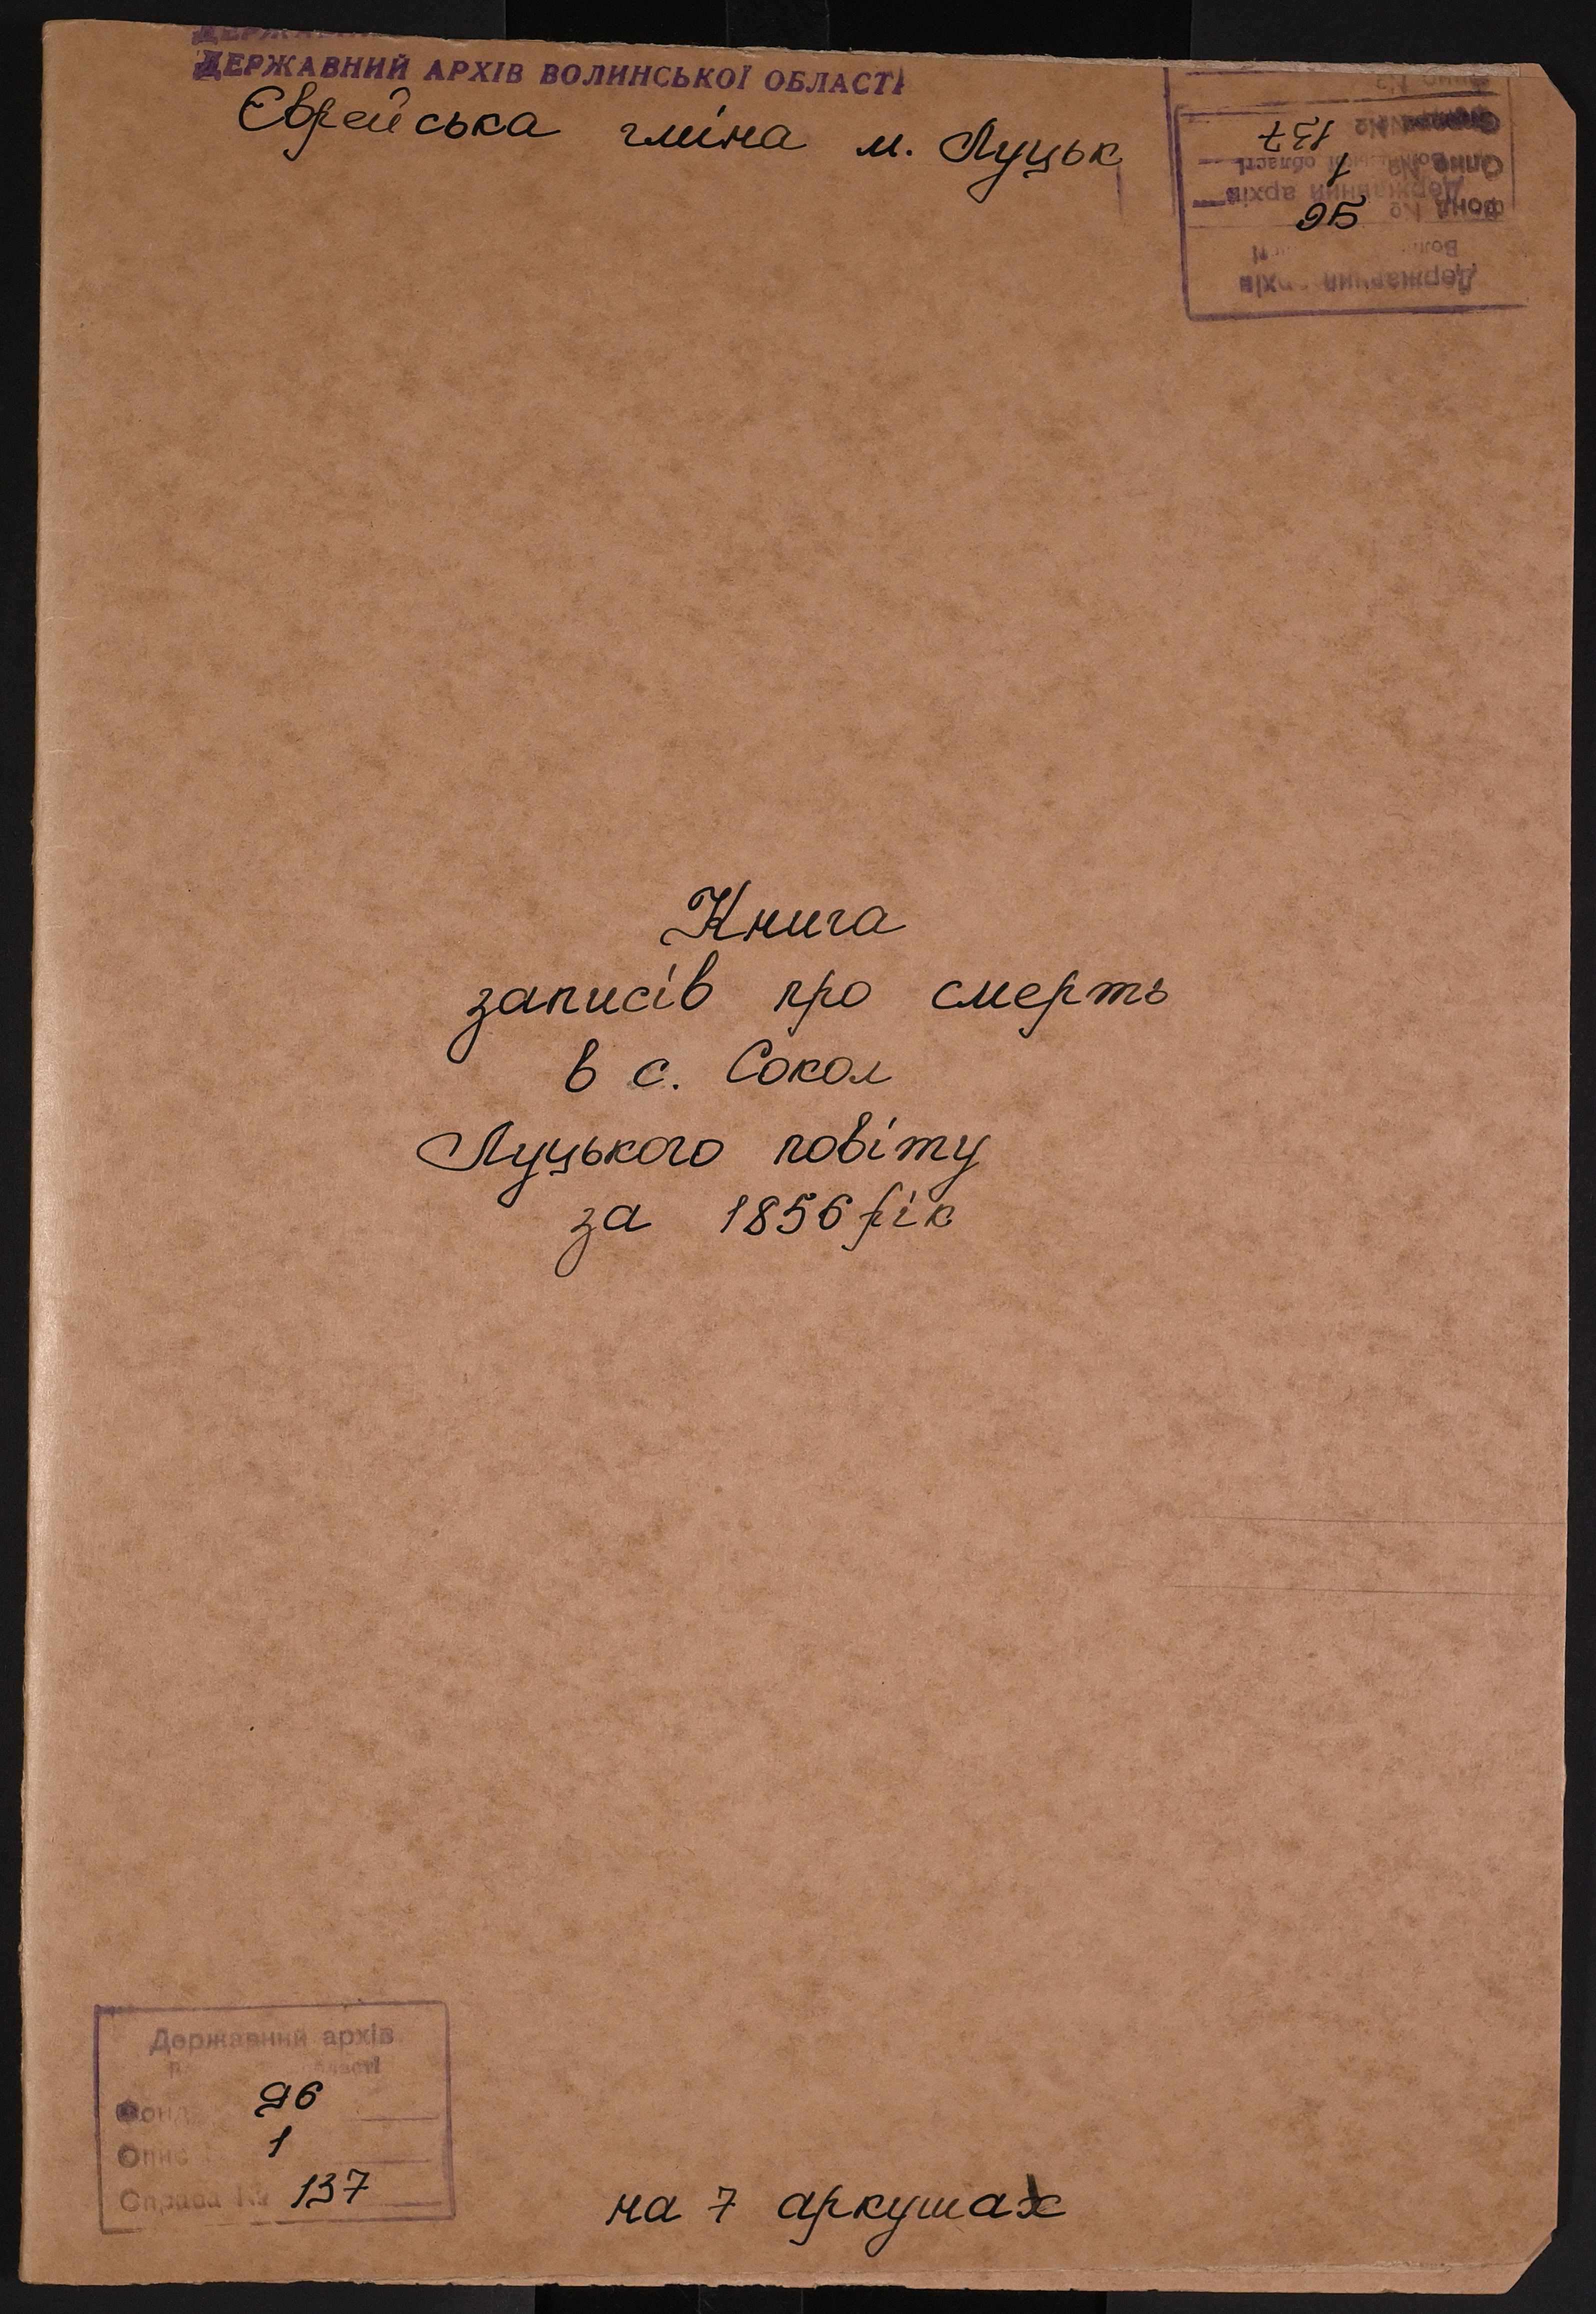 ДЕРЖАВНИЙ АРХІВ ВОЛИНСЬКОЇ ОБЛАСТІ
Єврейська гміна м. Луцьк
Державний архів
Фонд № 96
Опис № 1
137
Книга
записів про смерть
в с. Сокол
Луцького повіту
за 1856 рік
Державний архів
області
Фонд 96
Опис 1
Справа № 137
на 7 аркушах